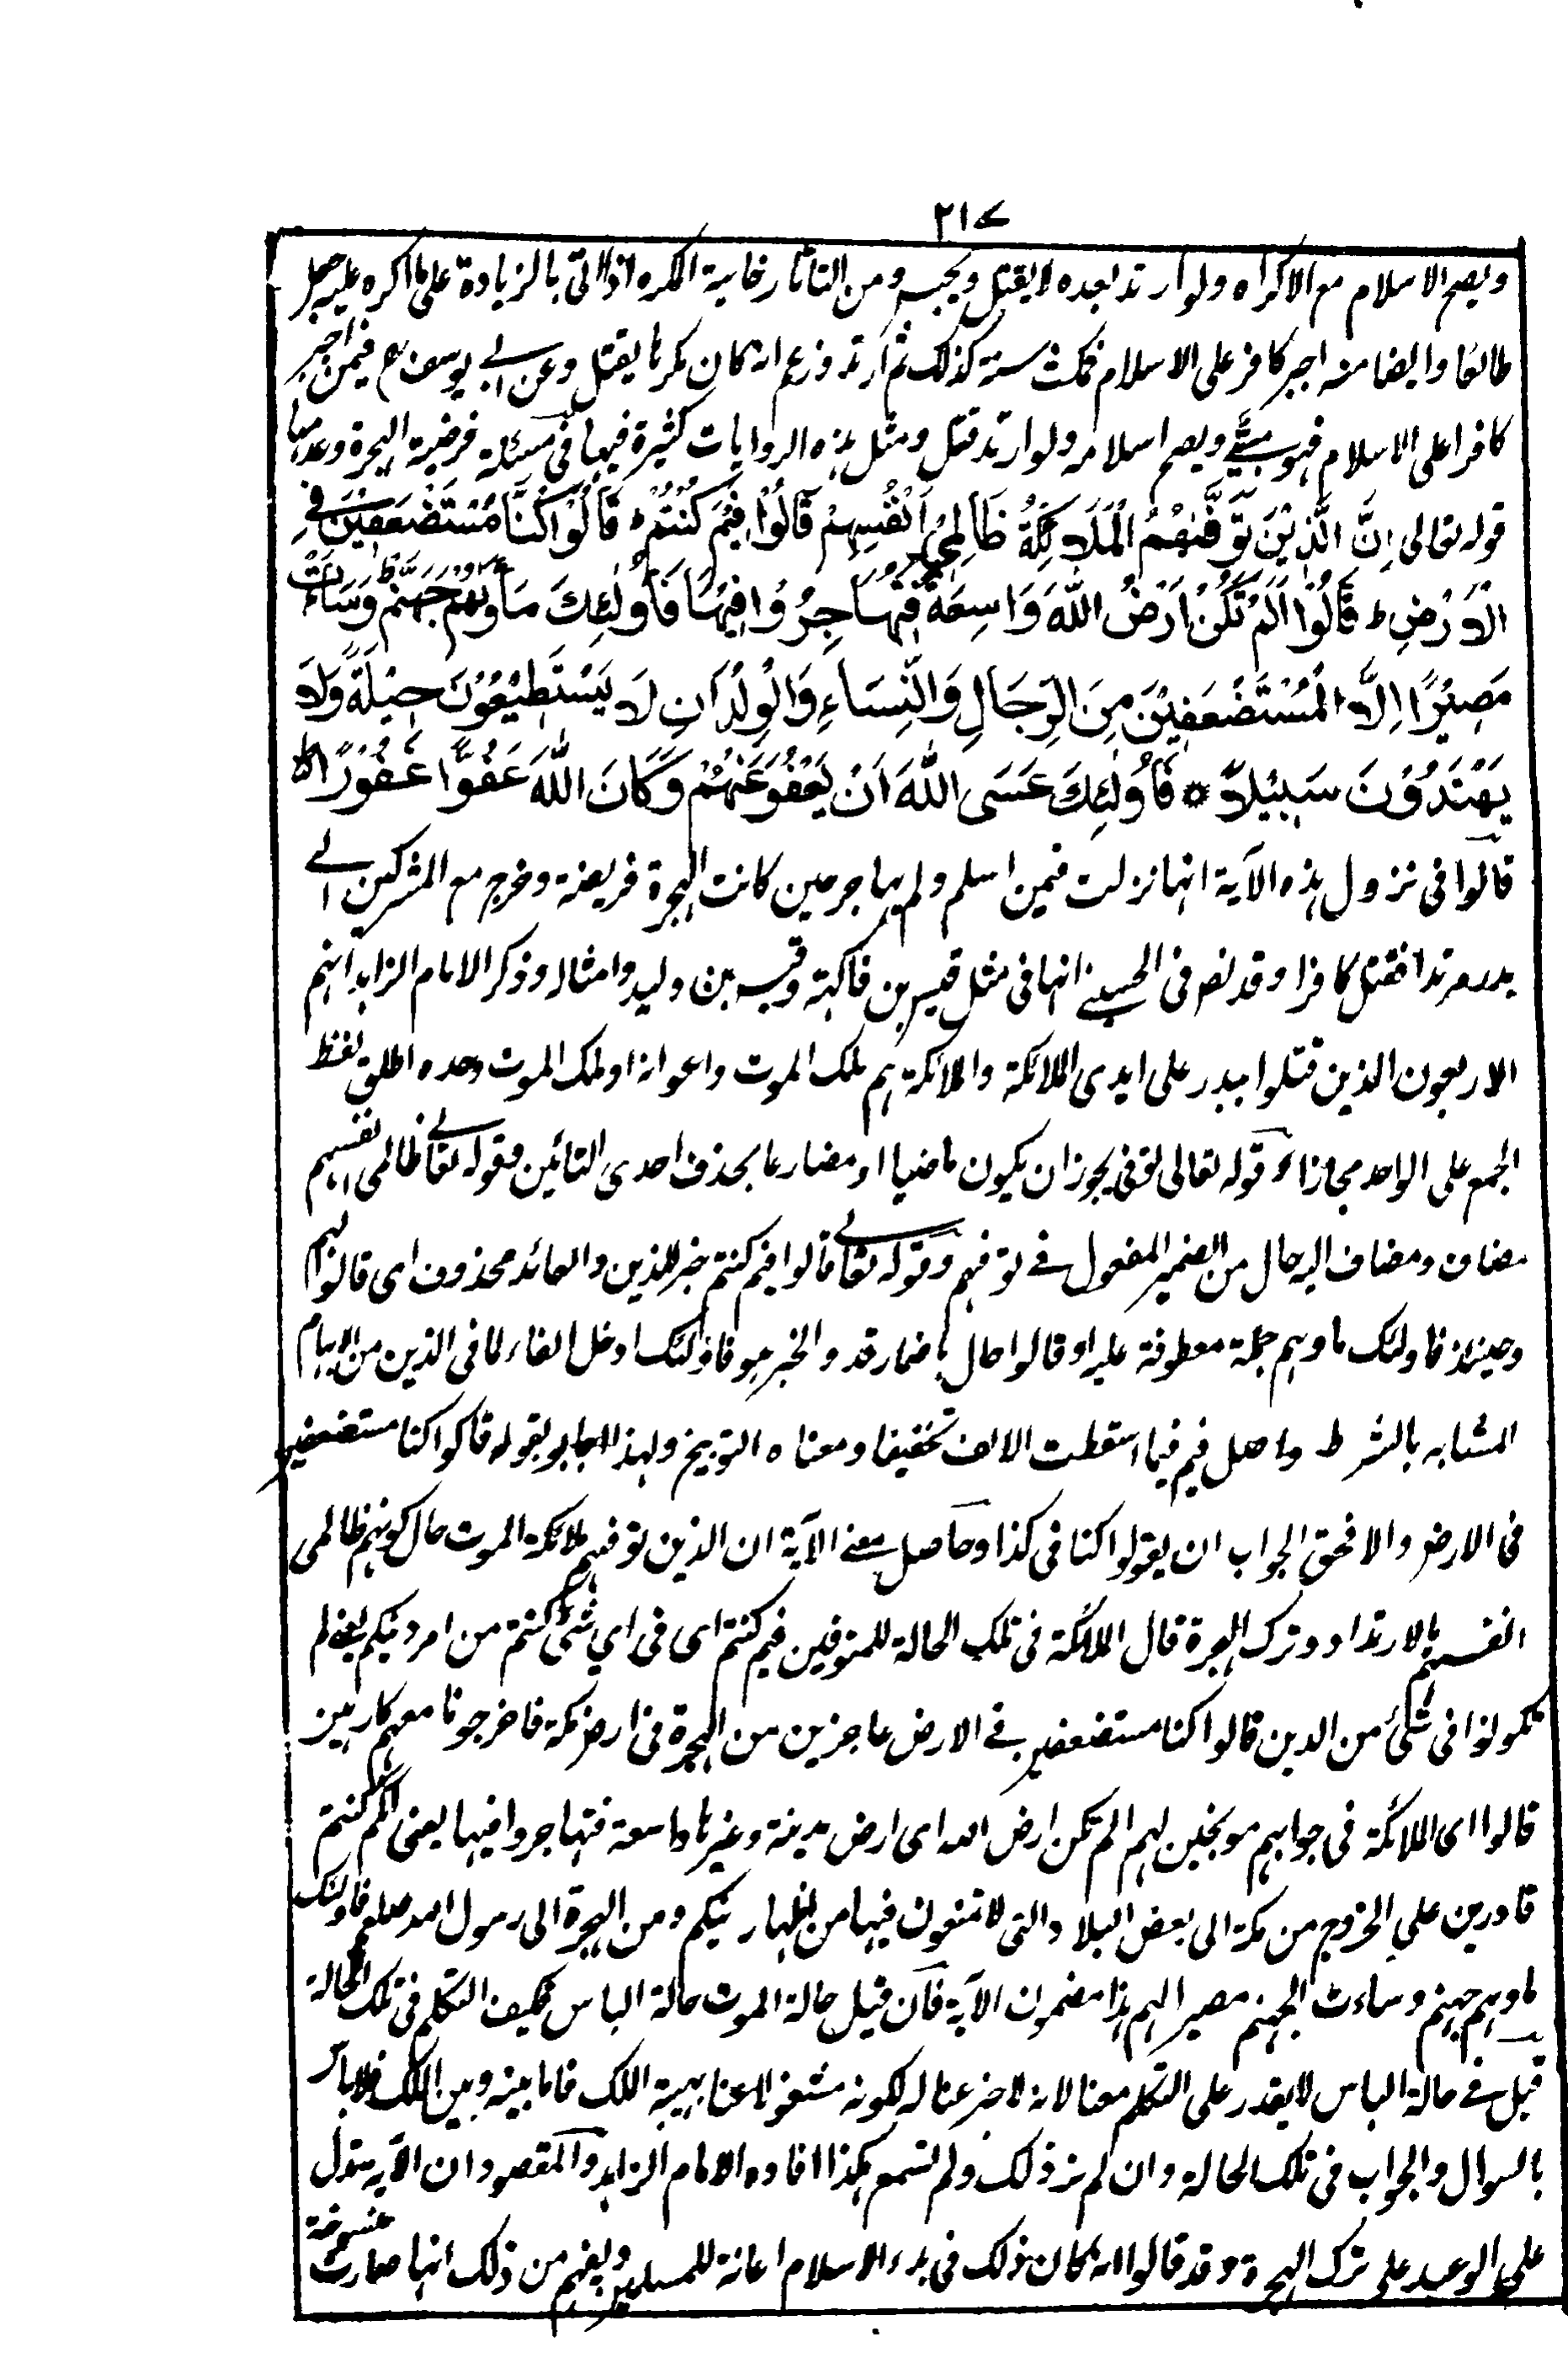 ٢١٧
ويصح الاسلام مع الاكراه ولو ارتد بعده لا يقتل ويحبس ومن التاتارخانية المكره اذا اتى بالزيادة على ما اكره عليه جعل
طائعا وايضا منه اجبر كافر على الاسلام فمكث سنة كذلك ثم ارتد وزعم انه كان مكرها يقتل وعن ابي يوسف رح فيمن اجبر
كافرا على الاسلام فهو مسيء ويصح اسلامه ولو ارتد قتل ومثل هذه الروايات كثيرة فيها في مسئلة فرضية الهجرة وعدمها
قوله تعالى اِنَّ الَّذِيْنَ تَوَفّٰىهُمُ الْمَلَائِكَةُ ظَالِمِيْ اَنْفُسِهِمْ قَالُوْا فِيْمَ كُنْتُمْ ط قَالُوْا كُنَّا مُسْتَضْعَفِيْنَ فِي
الْاَرْضِ ط قَالُوْا اَلَمْ تَكُنْ اَرْضُ اللّٰهِ وَاسِعَةً فَتُهَاجِرُوْا فِيْهَا فَاُولٰئِكَ مَاْوٰىهُمْ جَهَنَّمُ ط وَسَاءَتْ
مَصِيْرًا اِلَّا الْمُسْتَضْعَفِيْنَ مِنَ الرِّجَالِ وَالنِّسَاءِ وَالْوِلْدَانِ لَا يَسْتَطِيْعُوْنَ حِيْلَةً وَّلَا
يَهْتَدُوْنَ سَبِيْلًا ۞ فَاُولٰئِكَ عَسَى اللّٰهُ اَنْ يَعْفُوَ عَنْهُمْ وَكَانَ اللّٰهُ عَفُوًّا غَفُوْرًا ط
قالوا في نزول هذه الآية انها نزلت فيمن اسلم ولم يهاجر حين كانت الهجرة فريضة وخرج مع المشركين الى
بدر مرتدا فقتل كافرا وقد نص في الحسيني انها في مثل قيس بن فاكهة وقيس بن وليد وامثاله وذكر الامام الزاهد انهم
الاربعون الذين قتلوا ببدر على ايدي الملائكة والملائكة هم ملك الموت واعوانه او ملك الموت وحده اطلق لفظ
الجمع على الواحد مجازا وقوله تعالى توفى يجوز ان يكون ماضيا او مضارعا بحذف احدى التائين وقوله تعالى ظالمي انفسهم
مضاف ومضاف اليه حال من الضمير المفعول في توفهم وقوله تعالى قالوا فيم كنتم خبر للذين والعائد محذوف اى قالوا لهم
وحينئذ فاولئك ماوهم جملة معطوفة عليه او قالوا حال باضمار قد والخبر هو فاولئك ادخل الفاء لما في الذين من الابهام
المشابه بالشرط واصل فيم فيما اسقطت الالف تخفيفا ومعناه التوبيخ ولهذا اجابوا بقوله قالوا كنا مستضعفين
في الارض والا فحق الجواب ان يقولوا كنا في كذا وحاصل معنى الآية ان الذين توفهم ملائكة الموت حال كونهم ظالمى
انفسهم بالارتداد وترك الهجرة قال الملائكة في تلك الحالة للمتوفين فيم كنتم اى في اي شئ كنتم من امر دينكم يعني لم
تكونوا في شئ من الدين قالوا كنا مستضعفين في الارض عاجزين من الهجرة في ارض مكة فاخرجونا معهم كارهين
قالوا اى الملائكة في جوابهم موبخين لهم الم تكن ارض الله اى ارض مدينة وغيرها واسعة فتهاجروا فيها يعنى انكم كنتم
قادرين على الخروج من مكة الى بعض البلاد والتى لا تمنعون فيها من اظهار دينكم ومن الهجرة الى رسول الله صلعم فاولئك
ماوهم جهنم وساءت الجهنم مصيرا لهم هذا مضمون الآية فان قيل حالة الموت حالة الباس فكيف التكلم في تلك الحالة
قيل في حالة الباس لا يقدر على التكلم معنا لانه لا خبر عنا له لكونه مشغولا عنا بهيبة الملك فاما بينه وبين الملك فلا باس
بالسوال والجواب في تلك الحالة وان لم نر ذلك ولم نسمع هكذا افاده الامام الزاهد والمقصود ان الآية تدل
على الوعيد على ترك الهجرة وقد قالوا انه كان ذلك في بدء الاسلام اعانة للمسلمين ويفهم من ذلك انها صارت منسوخة